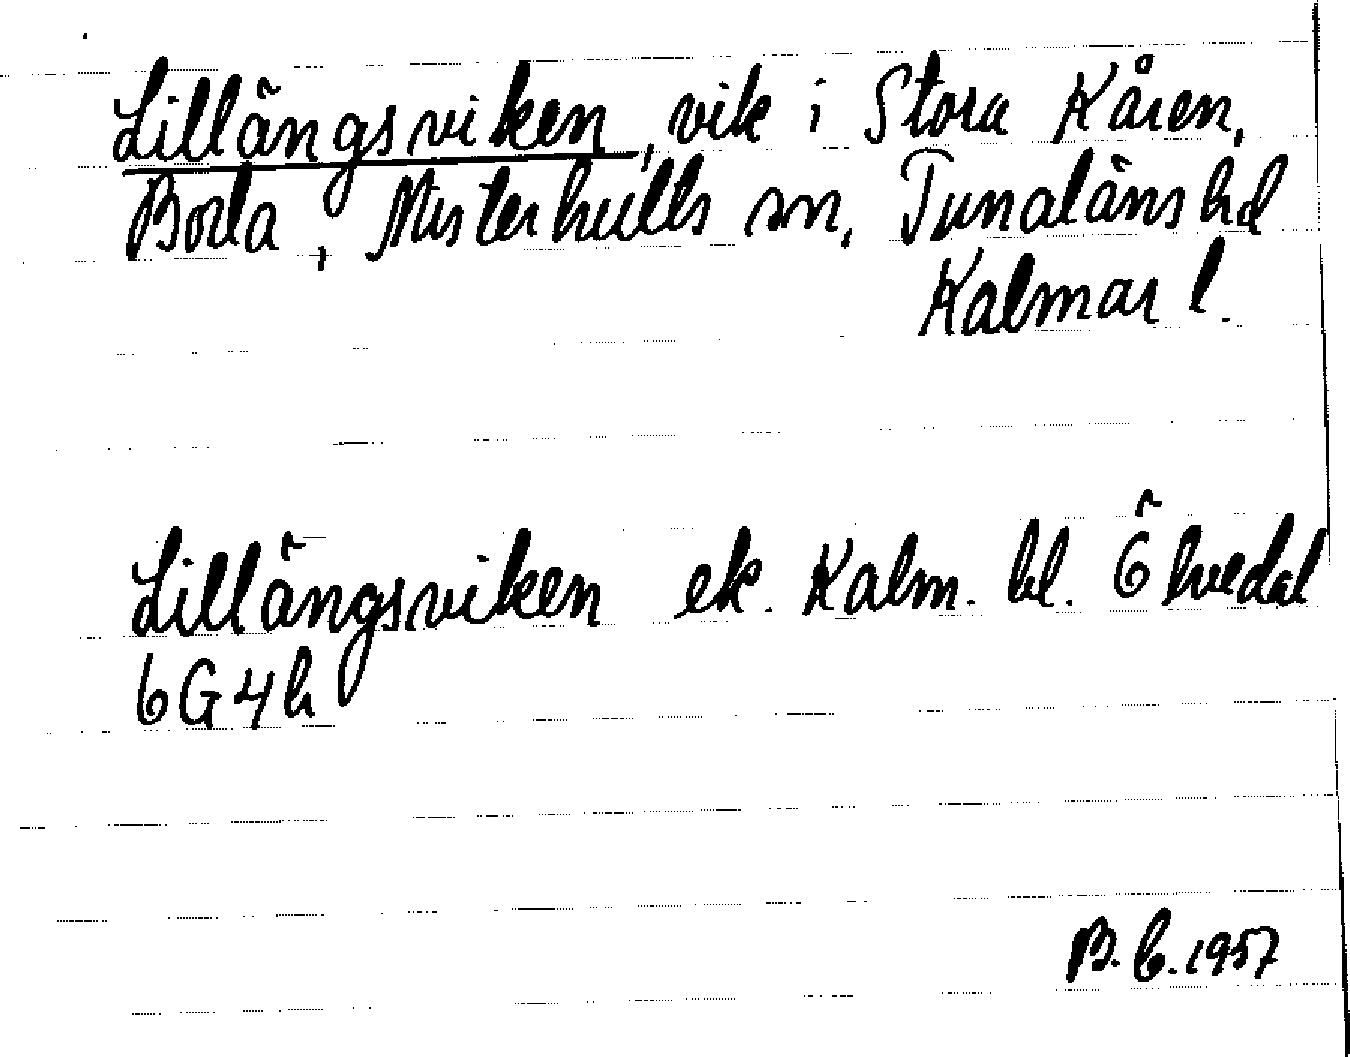 Lillängsviken, vik i Stora Kåren,
Borla, Misterhults sn, Tunaläns hd
Kalmar l.
Lillängsviken ek. Kalm. bl. Ö hvedal
6G4h
B.C. 1957